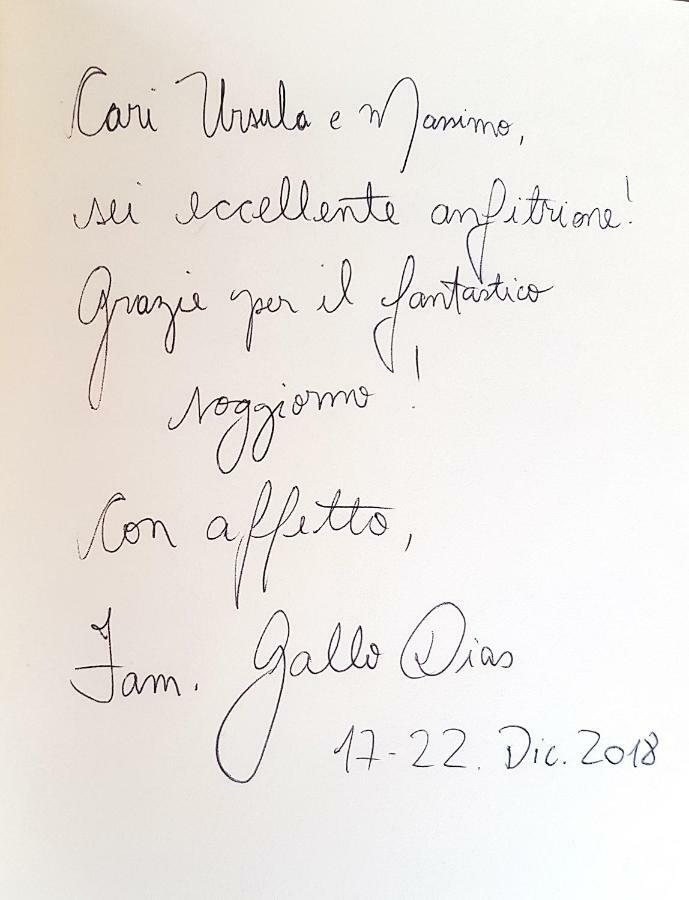 Cari Ursula e Massimo,
sei eccellente anfitrione!
Grazie per il fantastico
soggiorno!
Con affetto,
Fam. Gallo Dias
17-22. Dic. 2018